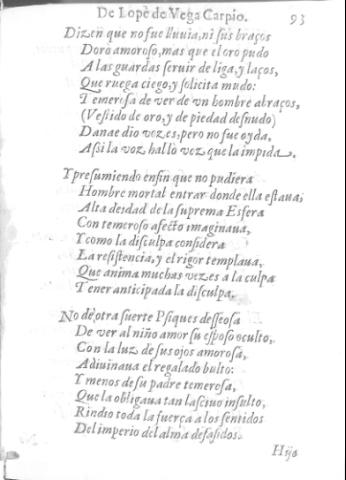 De Lope de Vega Carpio. 93
Dizen que no fue lluuia, ni sus braços
Doro amoroso, mas que el oro pudo
A las guardas seruir de liga, y laços,
Que ruega ciego, y solicita mudo:
Temerosa de ver de vn hombre abraços,
(Vestido de oro, y de piedad desnudo)
Danae dio vozes, pero no fue oyda,
Assi la voz hallò voz que la impida.
Y presumiendo enfin que no pudiera
Hombre mortal entrar donde ella estaua;
Alta deidad de la suprema Esfera
Con temeroso afecto imaginaua,
Y como la disculpa considera
La resistencia, y el rigor templaua,
Que anima muchas vezes a la culpa
Tener anticipada la disculpa.
No de otra suerte Psiques desseosa
De ver al niño amor su esposo oculto,
Con la luz de sus ojos amorosa,
Adiuinaua el regalado bulto:
Y menos de su padre temerosa,
Que la obligaua tan lasciuo insulto,
Rindio toda la fuerça a los sentidos
Del imperio del alma desasidos.
Hijo